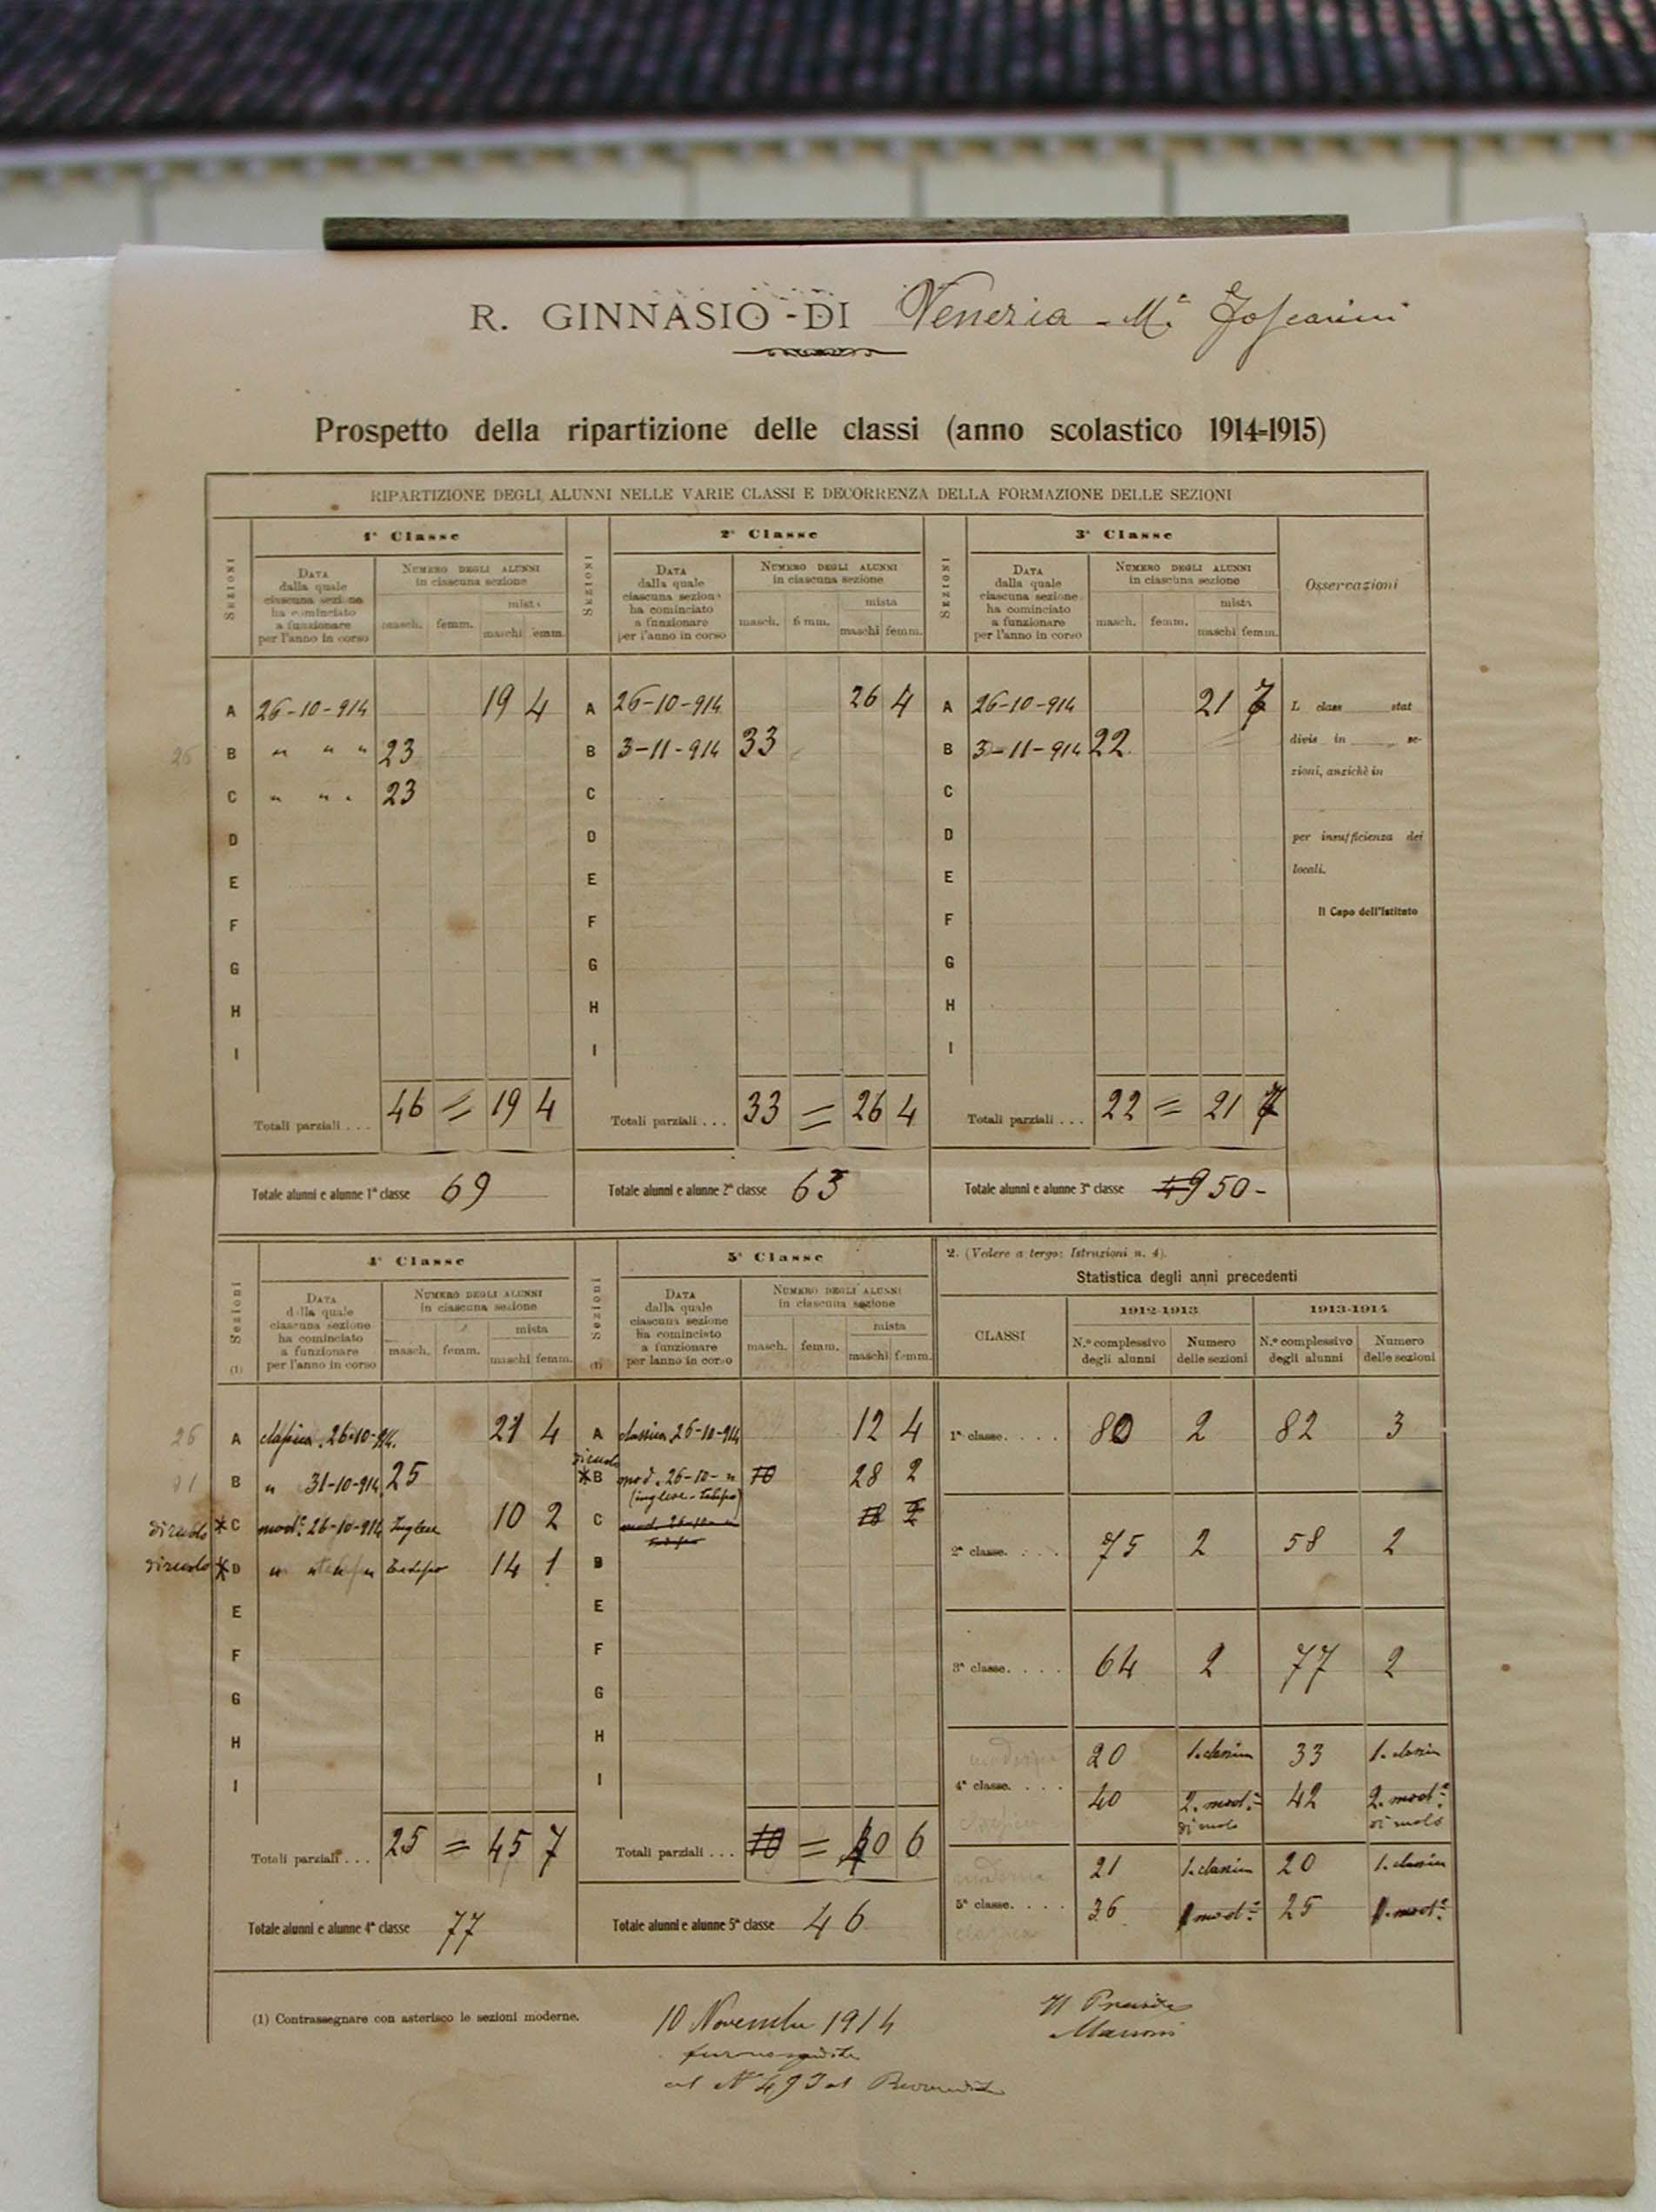 R. GINNASIO - DI Venezia - M.º Foscarini
Prospetto della ripartizione delle classi (anno scolastico 1914=1915)
RIPARTIZIONE DEGLI ALUNNI NELLE VARIE CLASSI E DECORRENZA DELLA FORMAZIONE DELLE SEZIONI
SEZIONI 1ª Classe SEZIONI 2ª Classe SEZIONI 3ª Classe Osservazioni
DATA dalla quale ciascuna sezione ha cominciato a funzionare per l'anno in corso NUMERO DEGLI ALUNNI in ciascuna sezione masch. femm. mista maschi femm.
DATA dalla quale ciascuna sezione ha cominciato a funzionare per l'anno in corso NUMERO DEGLI ALUNNI in ciascuna sezione masch. femm. mista maschi femm.
DATA dalla quale ciascuna sezione ha cominciato a funzionare per l'anno in corso NUMERO DEGLI ALUNNI in ciascuna sezione masch. femm. mista maschi femm.
A 26-10-914 19 4 A 26-10-914 26 4 A 26-10-914 21 7
B " " " 23 B 3-11-914 33 B 3-11-914 22
C " " " 23 C C
D D D
E E E
F F F
G G G
H H H
I I I
L class stat
divis in se-
zioni, anzichè in
per insufficienza dei
locali.
Il Capo dell'Istituto
Totali parziali . . . 46 = 19 4 Totali parziali . . . 33 = 26 4 Totali parziali . . . 22 = 21 7
Totale alunni e alunne 1ª classe 69 Totale alunni e alunne 2ª classe 63 Totale alunni e alunne 3ª classe 49 50 -
Sezioni (1) 4ª Classe Sezioni (1) 5ª Classe
DATA dalla quale ciascuna sezione ha cominciato a funzionare per l'anno in corso NUMERO DEGLI ALUNNI in ciascuna sezione masch. femm. mista maschi femm.
DATA dalla quale ciascuna sezione ha cominciato a funzionare per lanno in corso NUMERO DEGLI ALUNNI in ciascuna sezione masch. femm. mista maschi femm.
A classica. 26-10-914. 21 4 A classica 26-10-914 12 4
B " 31-10-914 25 *B mod. 26-10- " 28 2
(inglese-tedesco)
*C mod.ª 26-10-914 Inglese 10 2 C
*D " " " " tedesco 14 1 D
E E
F F
G G
H H
I I
Totali parziali . . . 25 = 45 7 Totali parziali . . . = 40 6
Totale alunni e alunne 4ª classe 77 Totale alunni e alunne 5ª classe 46
2. (Vedere a tergo: Istruzioni n. 4).
Statistica degli anni precedenti
CLASSI 1912-1913 1913-1914
N.º complessivo degli alunni Numero delle sezioni N.º complessivo degli alunni Numero delle sezioni
1ª classe. . . . 80 2 82 3
2ª classe. . . . 75 2 58 2
3ª classe. . . . 64 2 77 2
moderna 20 1. classica 33 1. classica
4ª classe. . . . 40 2. mod.ª 42 2. mod.ª
classica
moderna 21 1. classica 20 1. classica
5ª classe. . . . 36 1 mod.ª 25 1. mod.ª
classica
(1) Contrassegnare con asterisco le sezioni moderne.
10 Novembre 1914
Il Preside